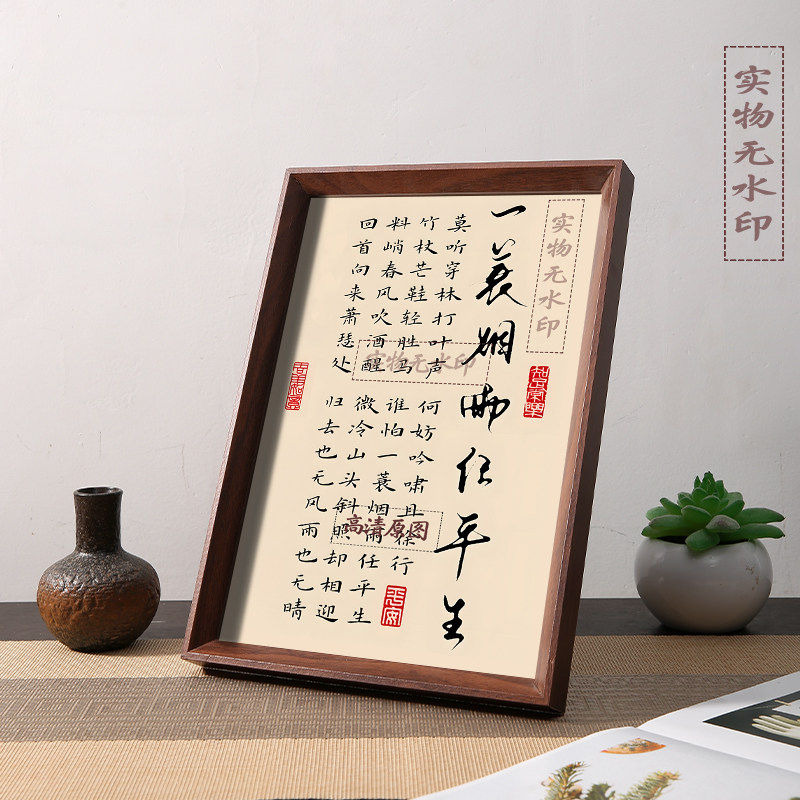 实物无水印
实物无水印
一蓑烟雨任平生
知足常乐
莫听穿林打叶声
何妨吟啸且徐行
竹杖芒鞋轻胜马
谁怕一蓑烟雨任平生
料峭春风吹酒醒
微冷山头斜照却相迎
回首向来萧瑟处
归去也无风雨也无晴
实物无水印
高清原图
平安